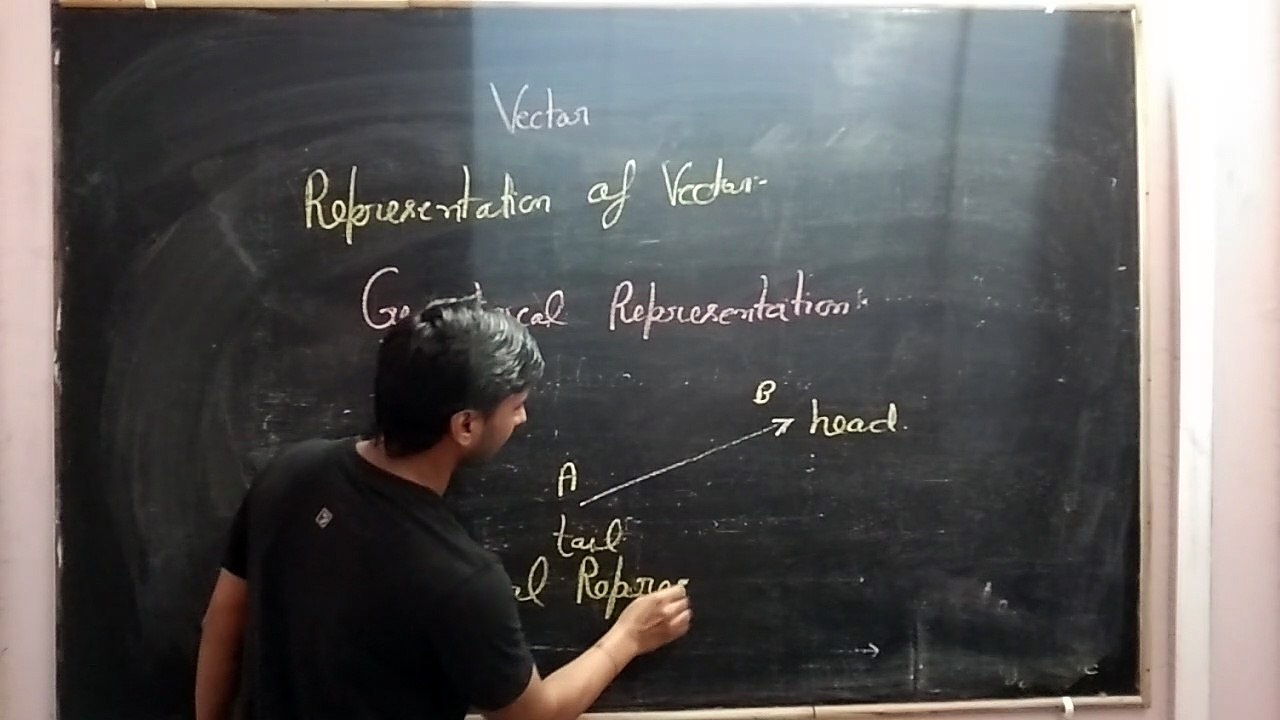 Vector
Representation of Vector-
Representation:
B
head.
A
tail